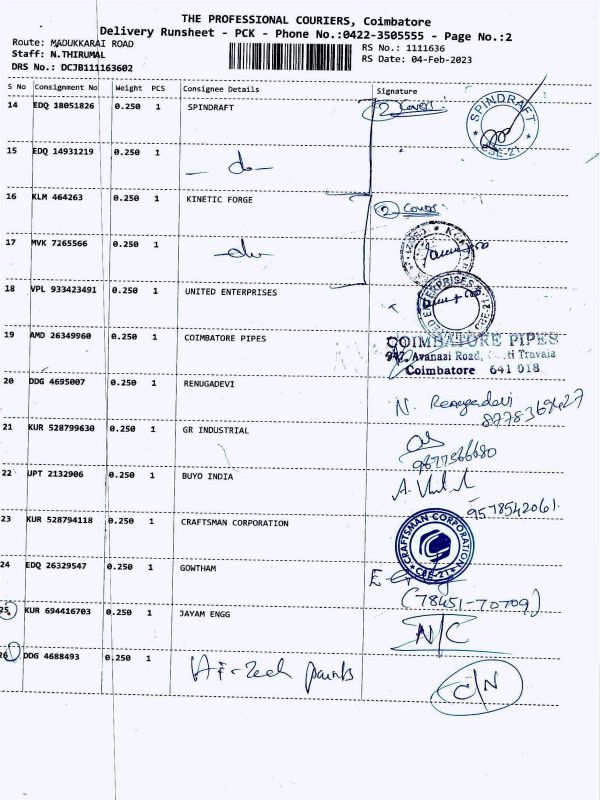 THE PROFESSIONAL COURIERS, Coimbatore
Delivery Runsheet - PCK - Phone No.:0422-3505555 - Page No.:2
Route: MADUKKARAI ROAD
RS No.: 1111636
Staff: N.THIRUMAL
RS Date: 04-Feb-2023
DRS No.: DCJB111163602
S No Consignment No Weight PCS Consignee Details Signature
14 EDQ 18051826 0.250 1 SPINDRAFT 2 Covers
SPINDRAFT
CBE-21
15 EDQ 14931219 0.250 1 — do —
16 KLM 464263 0.250 1 KINETIC FORGE 2 Covers
17 MVK 7265566 0.250 1 — do —
18 VPL 933423491 0.250 1 UNITED ENTERPRISES
19 AMD 26349960 0.250 1 COIMBATORE PIPES
COIMBATORE PIPES
947, Avanasi Road,
Coimbatore 641 018
20 DDG 4695007 0.250 1 RENUGADEVI N. Renugadevi
8778369427
21 KUR 528799630 0.250 1 GR INDUSTRIAL
9677566680
22 JPT 2132906 0.250 1 BUYO INDIA
9578542061.
23 KUR 528794118 0.250 1 CRAFTSMAN CORPORATION
CRAFTSMAN CORPORATION
CBE-21
24 EDQ 26329547 0.250 1 GOWTHAM
(78451-70709)
25 KUR 694416703 0.250 1 JAYAM ENGG N/C
26 DDG 4688493 0.250 1 Hi-Tech paints C/N